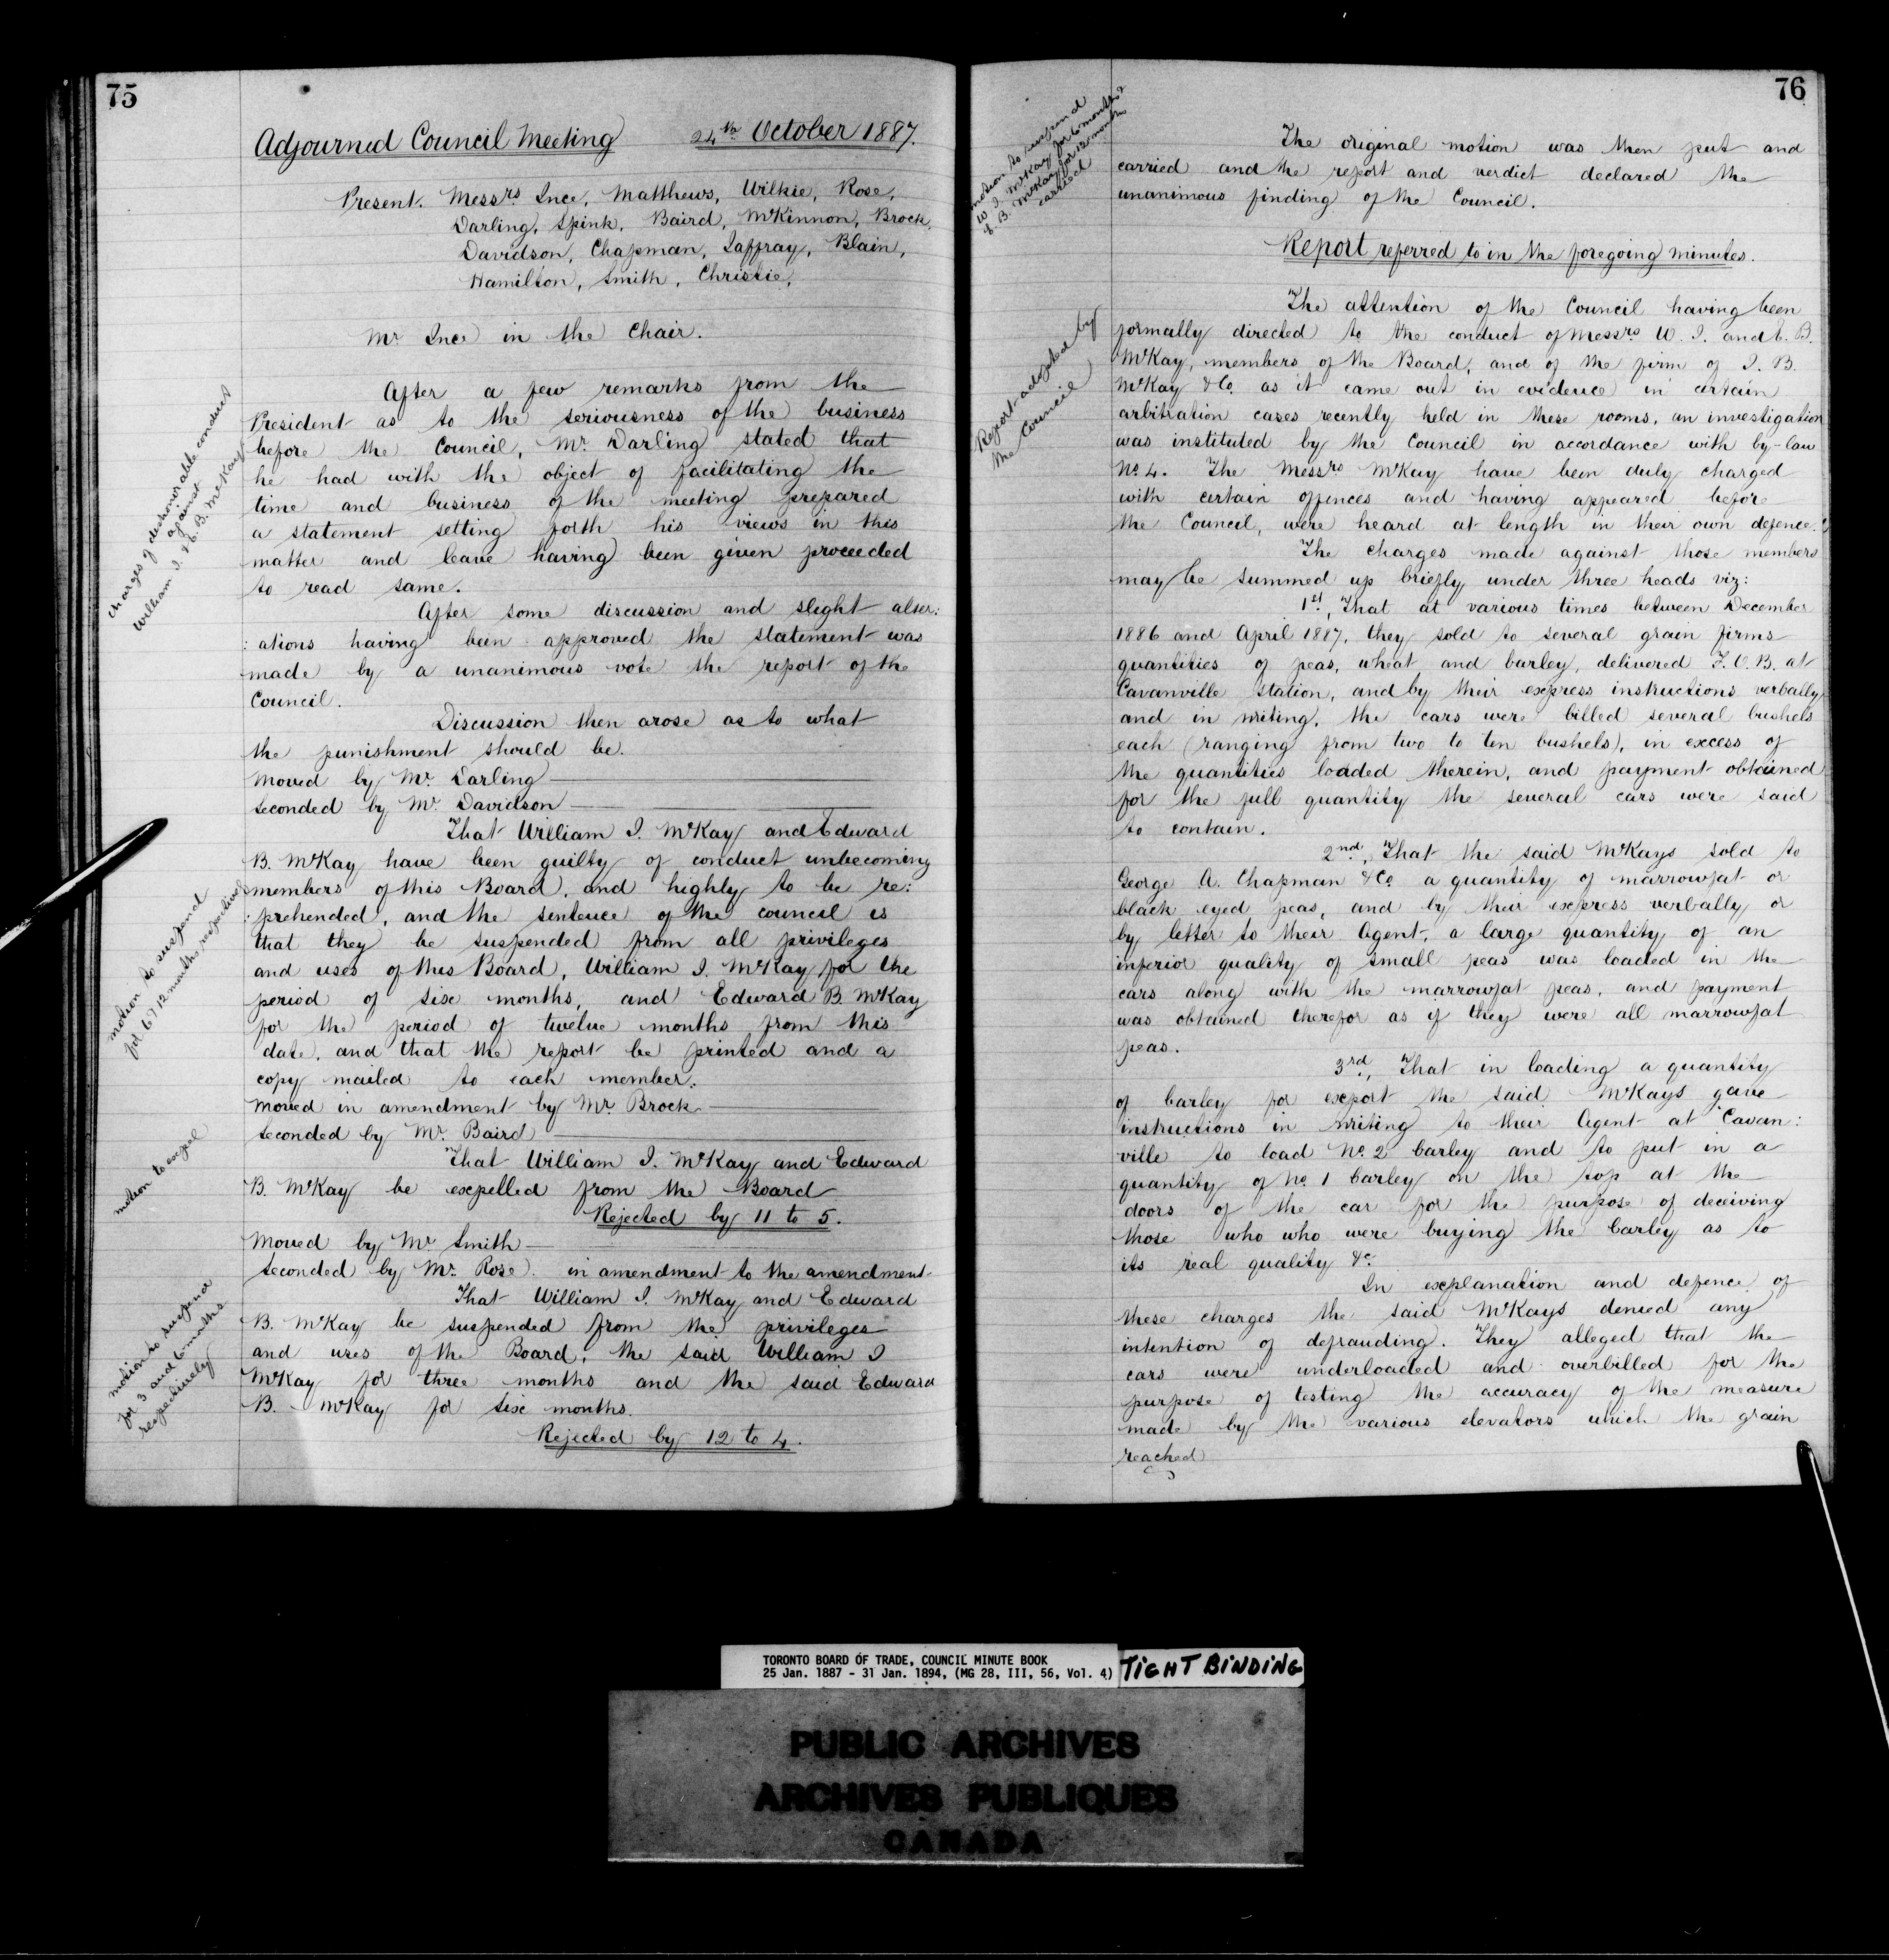 75
Adjourned Council Meeting 24th October 1887.
Present. Messrs Ince, Matthews, Wilkie, Rose,
Darling, Spink, Baird, McKinnon, Brock,
Davidson, Chapman, Jaffray, Blain,
Hamilton, Smith, Christie,
Mr. Ince in the Chair.
Charges of dishonorable conduct
against
William I. & E. B. McKay
After a few remarks from the
President as to the seriousness of the business
before the Council, Mr. Darling stated that
he had with the object of facilitating the
time and business of the meeting prepared
a statement setting forth his views in this
matter and leave having been given proceeded
to read same.
After some discussion and slight alter:
:ations having been approved the statement was
made by a unanimous vote the report of the
Council.
Discussion then arose as to what
the punishment should be.
Moved by Mr. Darling
Seconded by Mr. Davidson
motion to suspend
for 6 & 12 months respectively
That William I. McKay and Edward
B. McKay have been guilty of conduct unbecoming
members of this Board, and highly to be re:
:prehended, and the sentence of the council is
that they be suspended from all privileges
and uses of this Board, William I. McKay for the
period of six months, and Edward B McKay
for the period of twelve months from this
date, and that the report be printed and a
copy mailed to each member.
Moved in amendment by Mr. Brock
Seconded by Mr. Baird
motion to expel
That William I. McKay and Edward
B. McKay be expelled from the Board
Rejected by 11 to 5.
Moved by Mr Smith
Seconded by Mr. Rose. in amendment to the amendment.
motion to suspend
for 3 and 6 months
respectively
That William I. McKay and Edward
B. McKay be suspended from the privileges
and uses of the Board, the said William I
McKay for three months and the said Edward
B. McKay for six months.
Rejected by 12 to 4.
76
motion to suspend
W I. McKay for 6 months &
E. B. McKay for 12 months
carried
The original motion was then put and
carried and the report and verdict declared the
unanimous finding of the Council.
Report referred to in the foregoing minutes.
Report adopted by
the Council
The attention of the Council having been
formally directed to the conduct of Messrs W. I. and E. B.
McKay, members of the Board, and of the firm of I. B.
McKay & Co. as it came out in evidence in certain
arbitration cases recently held in these rooms, an investigation
was instituted by the Council in accordance with by-law
No. 4. The Messrs McKay have been duly charged
with certain offences and having appeared before
the Council, were heard at length in their own defence.
The charges made against those members
may be summed up briefly under three heads viz:
1st, That at various times between December
1886 and April 1887, they sold to several grain firms
quantities of peas, wheat and barley, delivered F.O.B. at
Cavanville Station, and by their express instructions verbally
and in writing, the cars were billed several bushels
each (ranging from two to ten bushels), in excess of
the quantities loaded therein, and payment obtained
for the full quantity the several cars were said
to contain.
2nd, That the said McKays sold to
George A. Chapman & Co. a quantity of marrowfat or
black eyed peas, and by their express verbally or
by letter to their Agent, a large quantity of an
inferior quality of small peas was loaded in the
cars along with the marrowfat peas, and payment
was obtained therefor as if they were all marrowfat
peas.
3rd, That in loading a quantity
of barley for export the said McKays gave
instructions in writing to their Agent at Cavan:
ville to load No. 2 barley and to put in a
quantity of No. 1 barley on the top at the
doors of the car for the purpose of deceiving
those who who were buying the barley as to
its real quality &c.
In explanation and defence of
these charges the said McKays denied any
intention of defrauding. They alleged that the
cars were underloaded and overbilled for the
purpose of testing the accuracy of the measure
made by the various elevators which the grain
reached
TORONTO BOARD OF TRADE, COUNCIL MINUTE BOOK
25 Jan. 1887 - 31 Jan. 1894, (MG 28, III, 56, Vol. 4)
TIGHT BINDING
PUBLIC ARCHIVES
ARCHIVES PUBLIQUES
CANADA